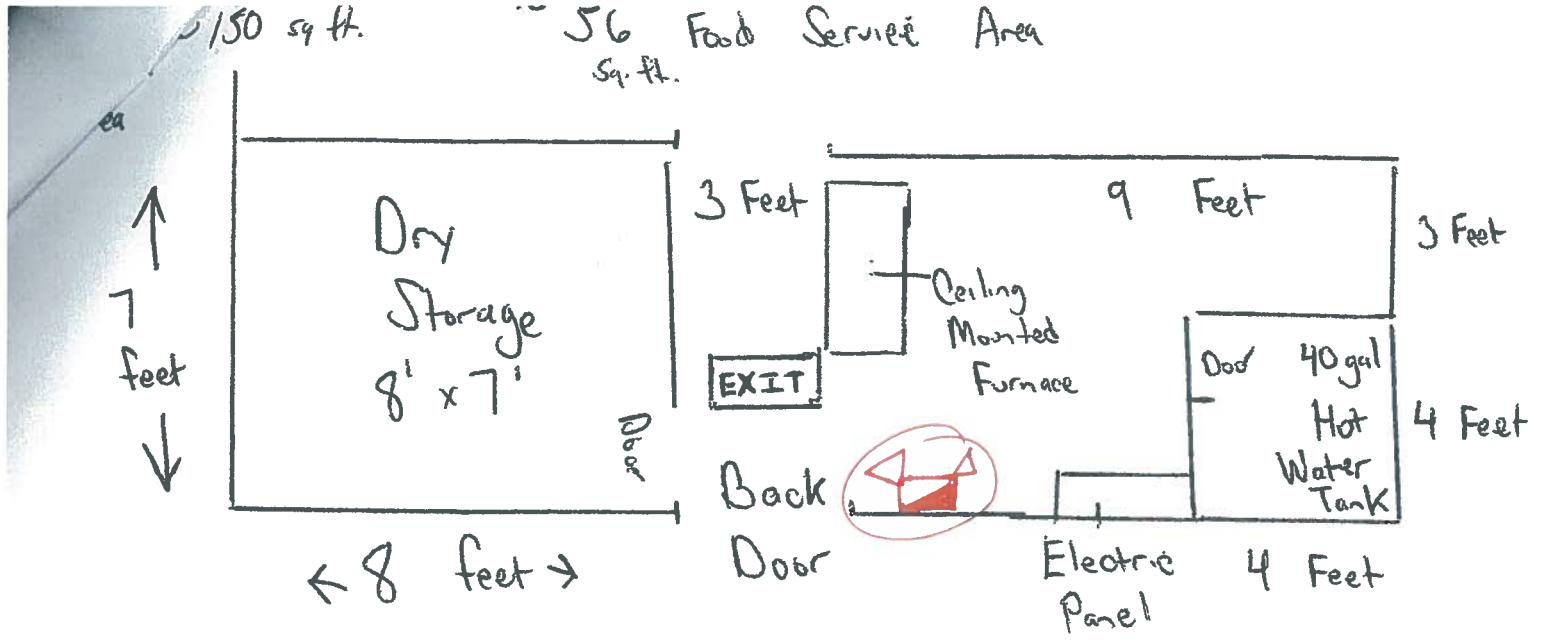 150 sq ft.
56 Food Service Area
sq. ft.
ea
7
feet
Dry
Storage
8' x 7'
Door
← 8 feet →
3 Feet
EXIT
Back
Door
Ceiling
Mounted
Furnace
9 Feet
3 Feet
Door
40 gal
Hot
Water
Tank
4 Feet
Electric
Panel
4 Feet